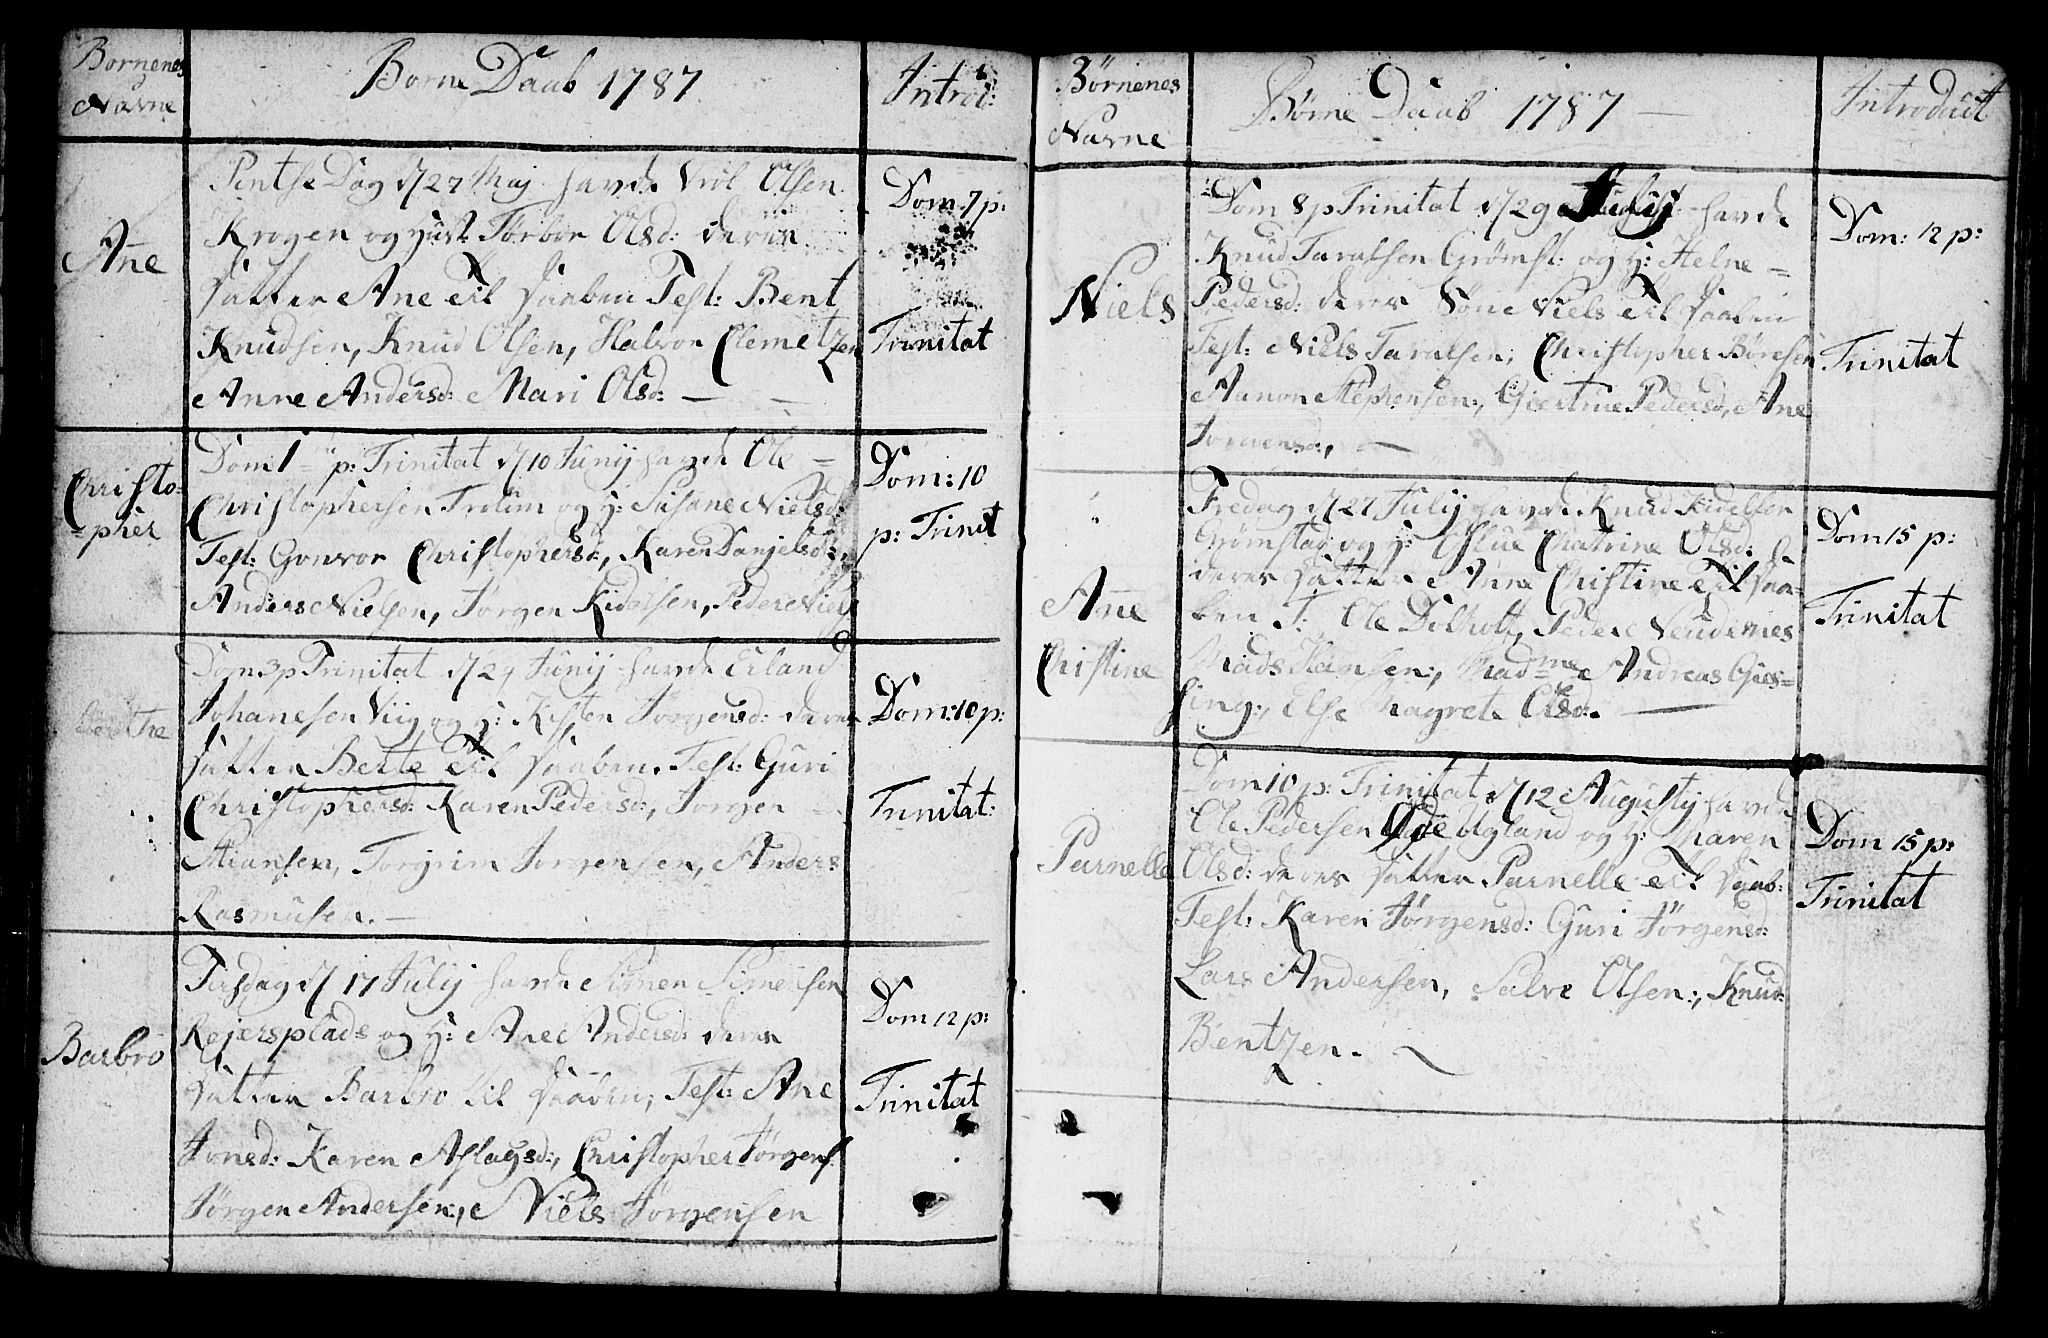 Bornenes
Navne
Borne Daab 1787
Introd:
Ane
Pintse Dag d/27 Maj havde Niel Olsen
Krogen og Hust: Torbor Olsd: deres
datter Ane til daaben Test: Bent
Knudsen, Knud Olsen, Halvor Clemetzen
Anne Andersd: Mari Olsd: — —
Dom 7 p:
Trinitat
Christo=
=pher
Dom 1 p: Trinitat d/10 Junij havde Ole =
Christophersen Trolim og H: Susane Nielsd:
Test: Gonvor Christophersd:, Karen Danjelsd:
Anders Nielsen, Jørgen Kidelsen, Peder Niels
Dom: 10
p: Trinit
Berthe
Dom 3 p Trinitat d/24 Junij havde Erland
Johanesen Viig og H: Kisten Jørgensd: deres
datter Berte til daaben. Test: Guri
Christophersd: Karen Pedersd:, Jorgen —
Stiansen, Torgrim Jorgensen, Anders
Rasmusen. —
Dom: 10 p:
Trinitat:
Barbro
Tirsdag d/ 17 Julij havde Simen Simensen
Rejersplads og H: Ane Andersd deres
datter Barbro til daaben; Test: Ane
Jonsd: Karen Aslagsd:, Christopher Jørgens
Jørgen Andersen:, Niels Jørgensen
Dom 12 p:
Trinitat
Börnenes
Navne
Börne Daab 1787 —
Introduct
Niels
Dom 8 p Trinitat d/29 Julij havde
Knud Taralsen Grömst: og H: Helne =
Pedersd: deres Sön Niels til daaben
Test: Niels Taralsen, Christopher Böresen
Aanon Stephensen:, Giertrue Pedersd:, Ane
Jorgensd:, —
Dom: 12 p:
Trinitat
Anne
Christine
Fredag d/27 Julij havde Knud Kidelsen
Grömstad og H: Chatrine Olsd:
deres datter Anne Christine til daa=
ben T: Ole Dibholt, Peder
Mads Hansen:, Mad=me Andreas Gies=
sing:, Else Magrete Olsd. —
Dom 15 p:
Trinitat
Parnelle
Dom 10 p: Trinitat d/12 Augustij havde
Ole Pedersen Ugland og H: Maren
Olsd: deres datter Parnelle til daab:
Test: Karen Jörgensd: Guri Jörgensd:
Lars Andersen, Salve Olsen:, Knud
Bentzen. —
Dom 15 p:
Trinitat